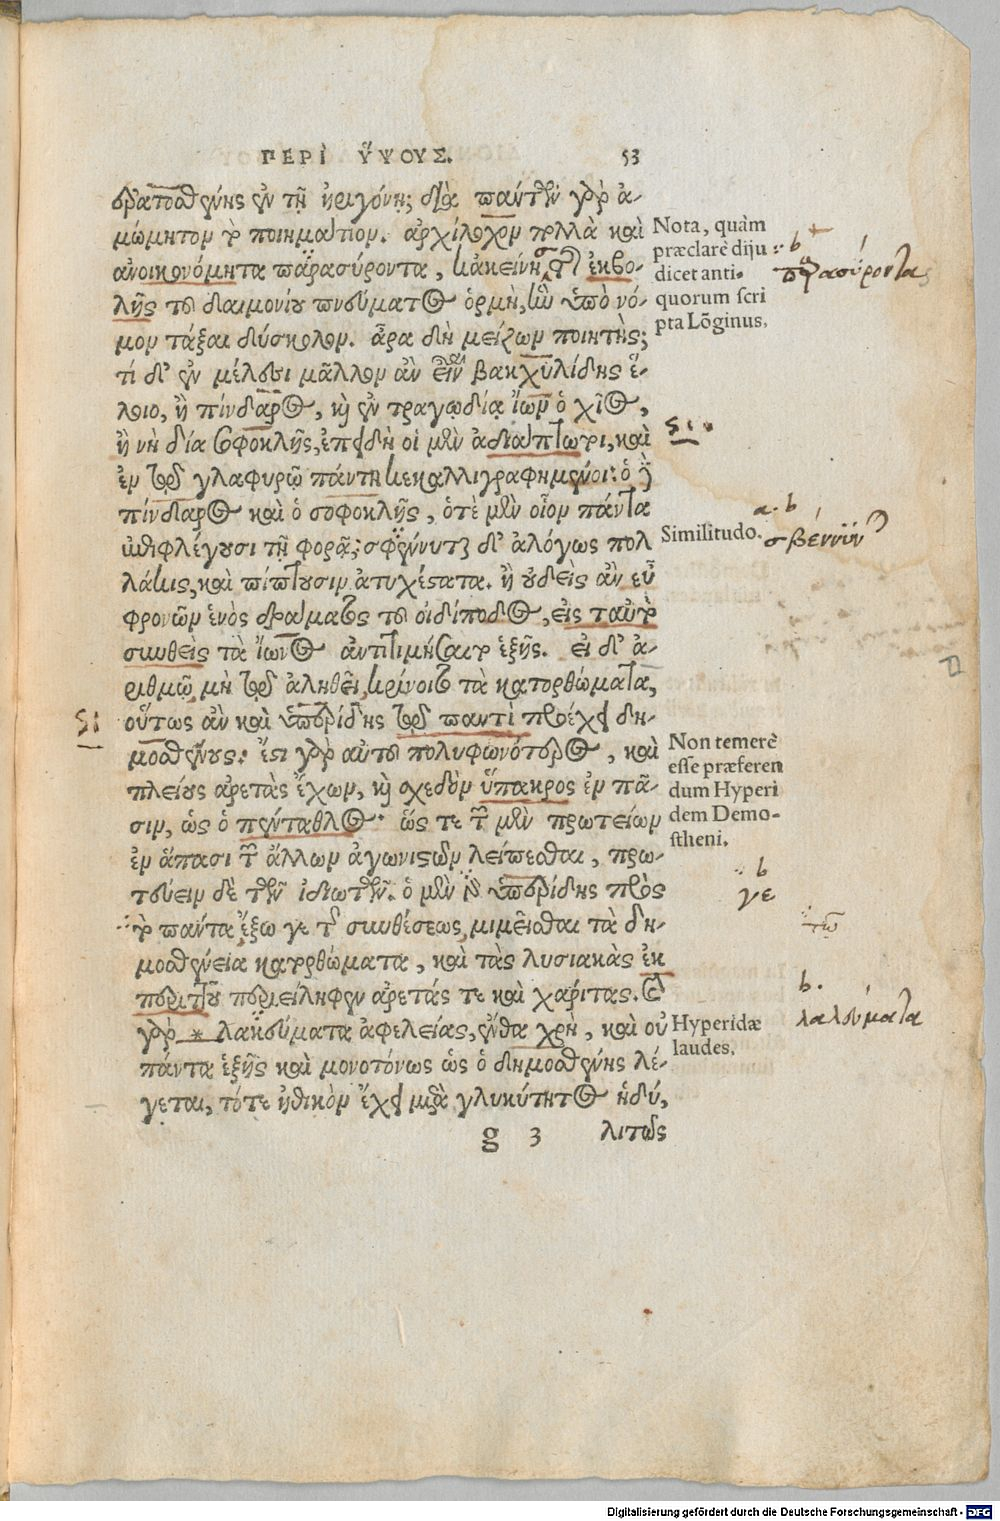 ΠΕΡΙ ὝΨΟΥΣ. 53
ἐρατοσθένης ἐν τῇ ἠριγόνῃ; διὰ πάντων γὰρ ἀ-
μώμητον τὸ ποιημάτιον. ἀρχίλοχον πολλὰ καὶ
ἀνοικονόμητα παρασύροντα, κἀκείνης τῆς ἐκβο-
λῆς τοῦ δαιμονίου πνεύματος ὁρμῇ, ἣν ὑπὸ νό-
μον τάξαι δύσκολον. ἆρα δὴ μείζων ποιητὴς;
τί δ' ἐν μέλεσι μᾶλλον ἂν εἶναι βακχυλίδης ἕ-
λοιο, ἢ πίνδαρος, καὶ ἐν τραγῳδίᾳ ἴων ὁ χῖος,
ἢ νὴ δία σοφοκλῆς, ἐπειδὴ οἱ μὲν ἀδιάπτωτοι, καὶ
ἐν τῷ γλαφυρῷ πάντη κεκαλλιγραφημένοι: ὁ δὲ
πίνδαρος καὶ ὁ σοφοκλῆς, ὁτὲ μὲν οἷον πάντα
ἐπιφλέγουσι τῇ φορᾷ; σφένυται δ' ἀλόγως πολ
λάκις, καὶ πίπτουσιν ἀτυχέστατα. ἢ οὐδεὶς ἂν εὖ
φρονῶν ἑνὸς δράματος τοῦ οἰδίποδος, εἰς ταὐτὸ
συνθεὶς τὰ ἴωνος ἀντιτιμήσαιτο ἑξῆς. εἰ δ' ἀ-
ριθμῷ μὴ τῷ ἀληθεῖ κρίνοιτο τὰ κατορθώματα,
οὕτως ἂν καὶ ὑπερίδης τῷ παντὶ προέχει δη-
μοσθένους: ἔστι γὰρ αὐτοῦ πολυφωνότερος, καὶ
πλείους ἀρετὰς ἔχων, καὶ σχεδὸν ὕπακρος ἐν πᾶ-
σιν, ὡς ὁ πένταθλος· ὥς τε τῶν μὲν πρωτείων
ἐν ἅπασι τῶν ἄλλων ἀγωνιστῶν λείπεσθαι, πρω-
τεύειν δὲ τῶν ἰδιωτῶν. ὁ μέν γε ὑπερίδης πρὸς
τὸ πάντα ἔξω γε τῆς συνθέσεως μιμεῖσθαι τὰ δη-
μοσθένεια κατορθώματα, καὶ τὰς λυσιακὰς ἐκ
περιττοῦ περιείληφεν ἀρετάς τε καὶ χάριτας. καὶ
γὰρ * λακεύματα ἀφελείας, ἔνθα χρὴ, καὶ οὐ
πάντα ἑξῆς καὶ μονοτόνως ὡς ὁ δημοσθένης λέ-
γεται, τότε ἠθικὸν ἔχει μετὰ γλυκύτητος ἡδύ,
g 3 λιτῶς
Nota, quàm
præclarè diju
dicet anti-
quorum scri
pta Lōginus.
b
παρασύροντας
Similitudo.
a. b
σβέννυν
Non temerè
esse præferen
dum Hyperi
dem Demo-
stheni.
b
γε
τῶ
Hyperidæ
laudes.
b.
λαλεύματα
Digitalisierung gefördert durch die Deutsche Forschungsgemeinschaft - DFG